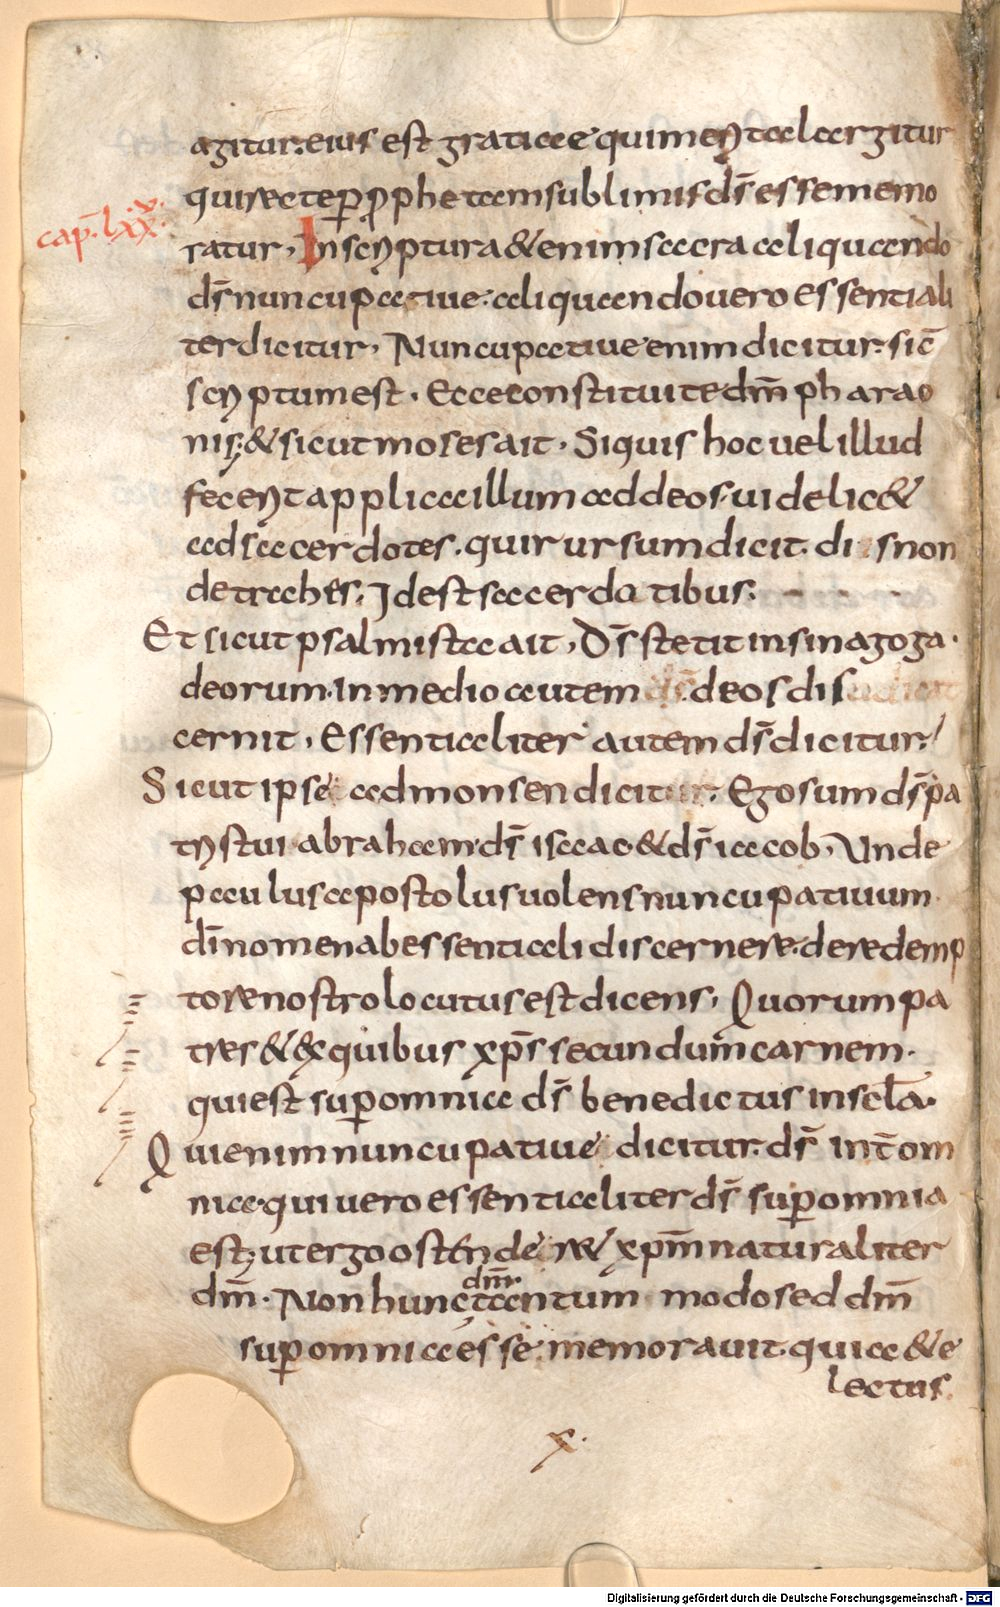 agitur. eius est gratiae qui meritæ largitur
qui recte p̄ ꝓphetam sublimis ds̄ esse memo
cap̄. lxx.v.
ratur, In scriptura & enim sacra aliquando
ds̄ nuncupatiue. aliquando uero essentiali
ter dicitur, Nuncupatiue enim dicitur. sic̄
scriptum est. Ecce constitui te dm̄ pharao
nis; & sicut moses ait. Siquis hoc uel illud
fecerit applica illum ad deos. uidelic&
ad sacerdotes. qui rursum dicit. diis non
detrahes. Idest sacerdotibus.
Et sicut psalmista ait, Ds̄ stetit in sinagoga.
deorum. in medio autem deos dis
cernit, Essentialiter autem ds̄ dicitur.
Sicut ipse ad mosen dicit. Ego sum ds̄ pa
tris tui abraham. ds̄ isaac. & ds̄ iacob, Unde
paulus apostolus uolens nuncupatiuum
dī nomen ab essentiali discernere. de redemp
tore nostro locutus est dicens, Quorum pa
tres & ex quibus xp̄s secundum carnem.
qui est sup̄ omnia ds̄ benedictus in scl̄a.
Qui enim nuncupatiue dicitur. ds̄ int̄ om
nia. qui uero essentialiter ds̄ sup̄ omnia
est; ut ergo ostenderet xp̄m naturaliter
dm̄.
dm̄. Non hunc tantum modo sed dm̄
sup̄ omnia esse memorauit. quia & e
lectus.
x.
Digitalisierung gefördert durch die Deutsche Forschungsgemeinschaft - DFG